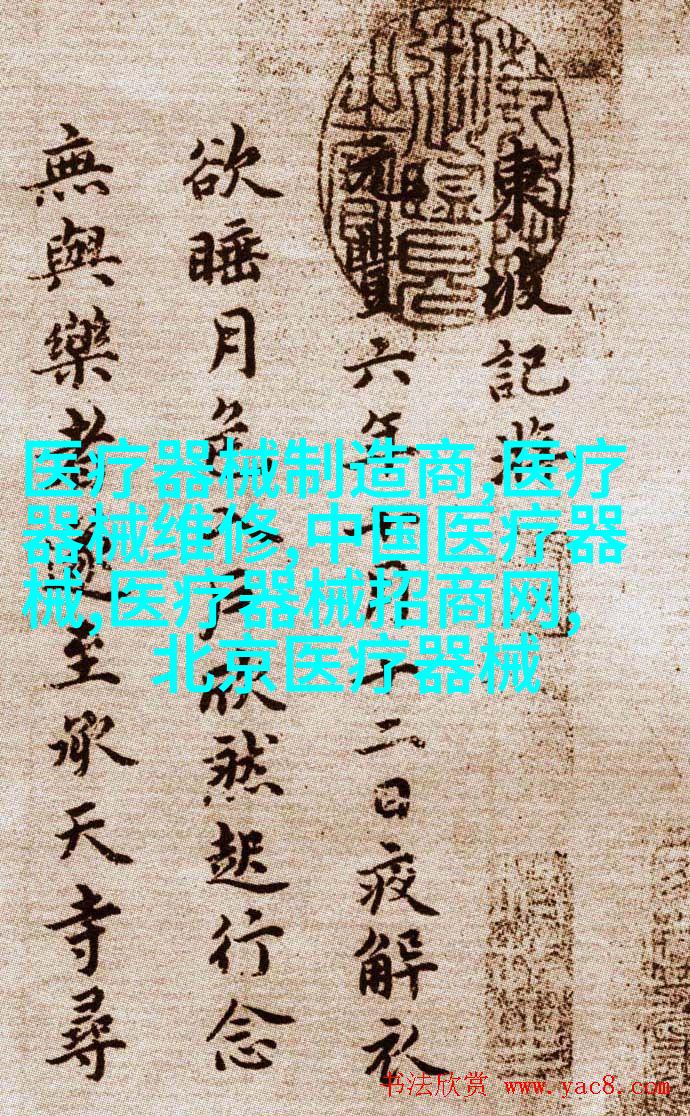 東坡記
元豐六年十月十二日夜解衣
欲睡月色入户欣然起行念
無與樂者遂至承天寺尋
医疗器械制造商,医疗
器械维修,中国医疗器
械,医疗器械招商网,
北京医疗器械
书法欣赏 www.yac8.com